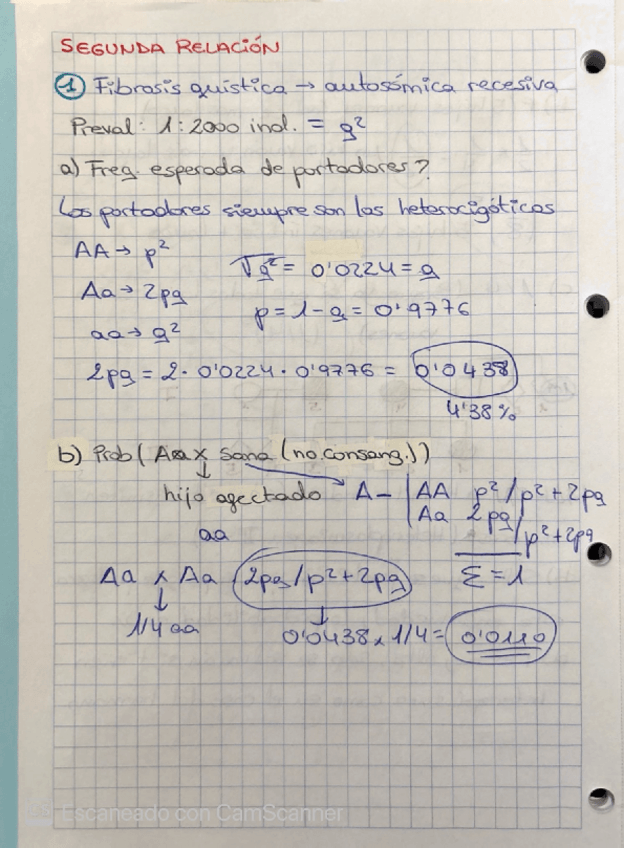 SEGUNDA RELACIÓN
1 Fibrosis quística → autosómica recesiva
Preval: 1:2000 ind. = q²
a) Freq. esperada de portadores?
Los portadores siempre son los heterocigóticos
AA → p²
Aa → 2pq
aa → q²
√q² = 0'0224 = q
p = 1 - q = 0'9776
2pq = 2 · 0'0224 · 0'9776 = 0'0438
4'38 %
b) Prob (Aa x Sana (no consang.))
↓
hijo afectado
aa
A- | AA p²/p²+2pq
Aa 2pq/p²+2pq
Σ = 1
Aa x Aa 2pq/p²+2pq
↓ ↓
1/4 aa 0'0438 x 1/4 = 0'0110
Escaneado con CamScanner